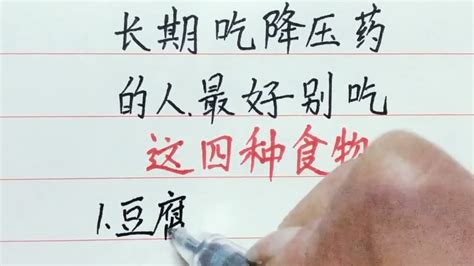 长期吃降压药
的人.最好别吃
这四种食物
1.豆腐